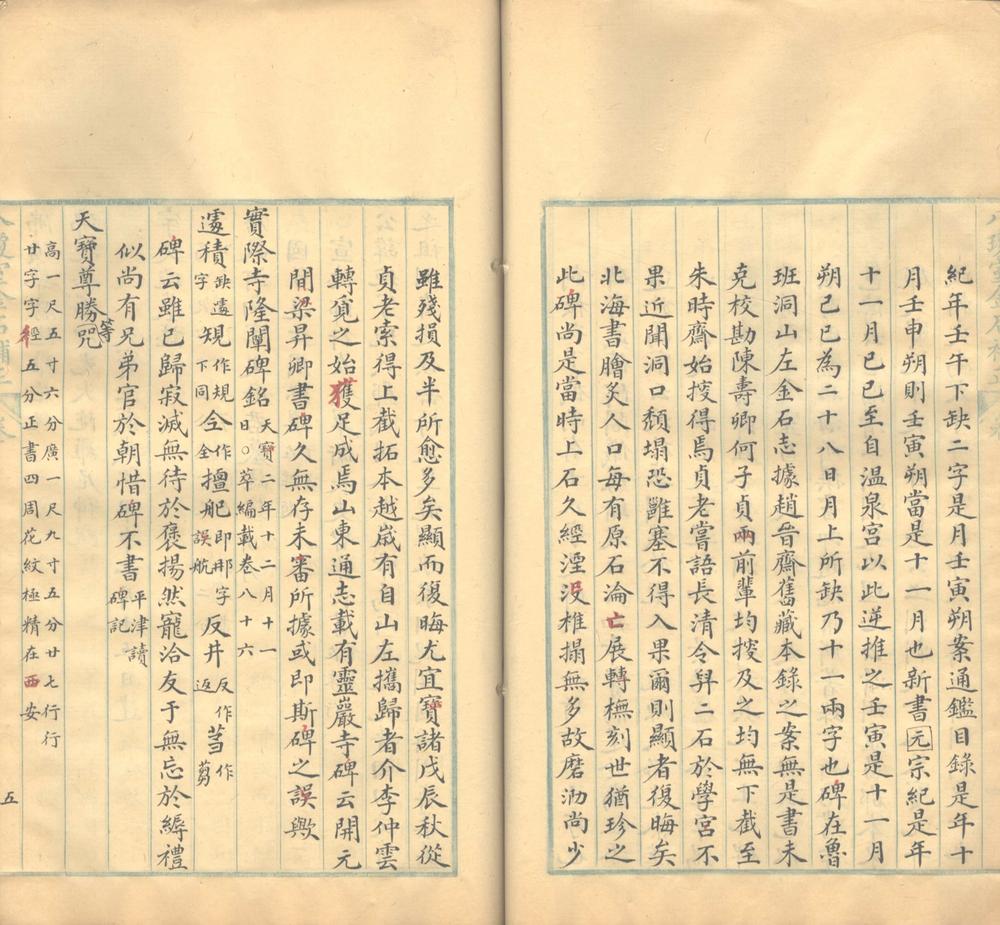 紀年壬午下缺二字是月壬寅朔案通鑑目錄是年十
月壬申朔則壬寅朔當是十一月也新書元宗紀是年
十一月己巳至自温泉宮以此逆推之壬寅是十一月
朔己巳為二十八日月上所缺乃十一兩字也碑在魯
班洞山左金石志據趙晉齋舊藏本錄之案無是書未
克校勘陳壽卿何子貞兩前輩均搜及之均無下截至
朱時齋始搜得焉貞老嘗語長清令舁二石於學宮不
果近聞洞口頹塌恐難塞不得入果爾則顯者復晦矣
北海書膾炙人口每有原石淪亡展轉橅刻世猶珍之
此碑尚是當時上石久經湮没椎搨無多故磨泐尚少
雖殘損及半所愈多矣顯而復晦尤宜寶諸戊辰秋從
貞老索得上截拓本越嵗有自山左攜歸者介李仲雲
轉覓之始獲足成焉山東通志載有靈巖寺碑云開元
間梁昇卿書碑久無存未審所據或即斯碑之誤歟
實際寺隆闡碑銘天寶二年十二月十一日○萃編載卷八十六
遙積缺遙字規作規下同仝作全擅舥即那字誤航反井反作返茑作蒭
碑云雖已歸寂滅無待於褒揚然寵洽友于無忘於縟禮
似尚有兄弟官於朝惜碑不書平津讀碑記
天寶尊勝咒等
高一尺五寸六分廣一尺九寸五分廿七行行
廿字字徑五分正書四周花紋極精在西安
五